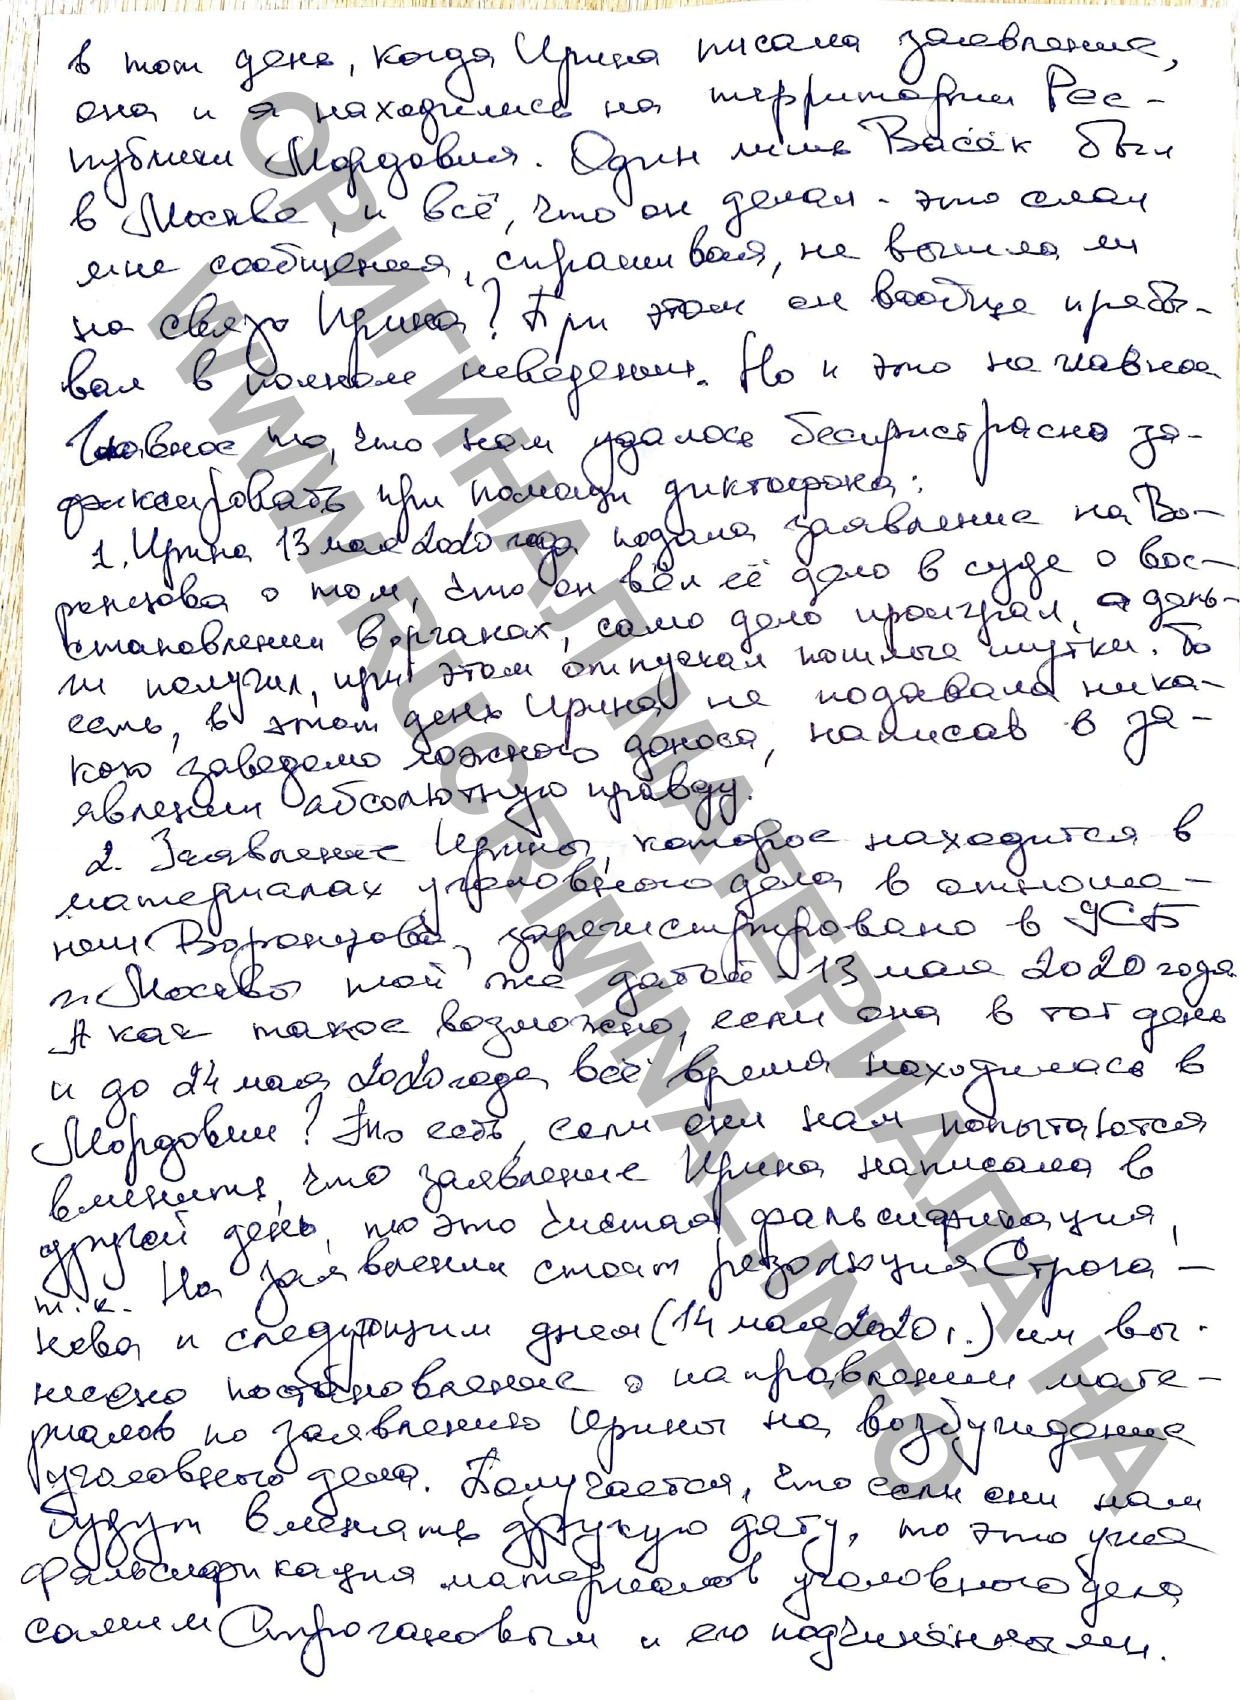 в тот день, когда Ирина писала заявление,
она и я находились на территории Рес-
публики Мордовия. Один лишь Васёк был
в Москве, и всё, что он делал - это слал
мне сообщения, спрашивая, не вышла ли
на связь Ирина? При этом он вообще пребы-
вал в полном неведении. Но и это не главное
Главное то, что нам удалось беспристрастно за-
фиксировать при помощи диктофона:
1. Ирина 13 мая 2020 года подала заявление на Во-
ронцова о том, что он вёл её дело в суде о вос-
становлении в органах, само дело проиграл, а день-
ги получил, при этом отпускал пошлые шутки. То
есть, в этот день Ирина не подавала ника-
кого заведомо ложного доноса, написав в за-
явлении абсолютную правду.
2. Заявление Ирины, которое находится в
материалах уголовного дела в отноше-
нии Воронцова, зарегистрировано в УСБ
г. Москвы той же датой - 13 мая 2020 года
А как такое возможно, если она в тот день
и до 24 мая 2020 года всё время находилась в
Мордовии? То есть, если они нам попытаются
вменить, что заявление Ирина написала в
другой день, то это чистая фальсификация,
т.к. На заявлении стоит резолюция Строга-
нова и следующим днем (14 мая 2020 г.) им вы-
несено постановление о направлении мате-
риалов по заявлению Ирины на возбуждение
уголовного дела. Получается, что если они нам
будут вменять другую дату, то это уже
фальсификация материалов уголовного дела
самим Строгановым и его подчинёнными.
ОРИГИНАЛ МАТЕРИАЛА НА
WWW.RUCRIMINAL.INFO